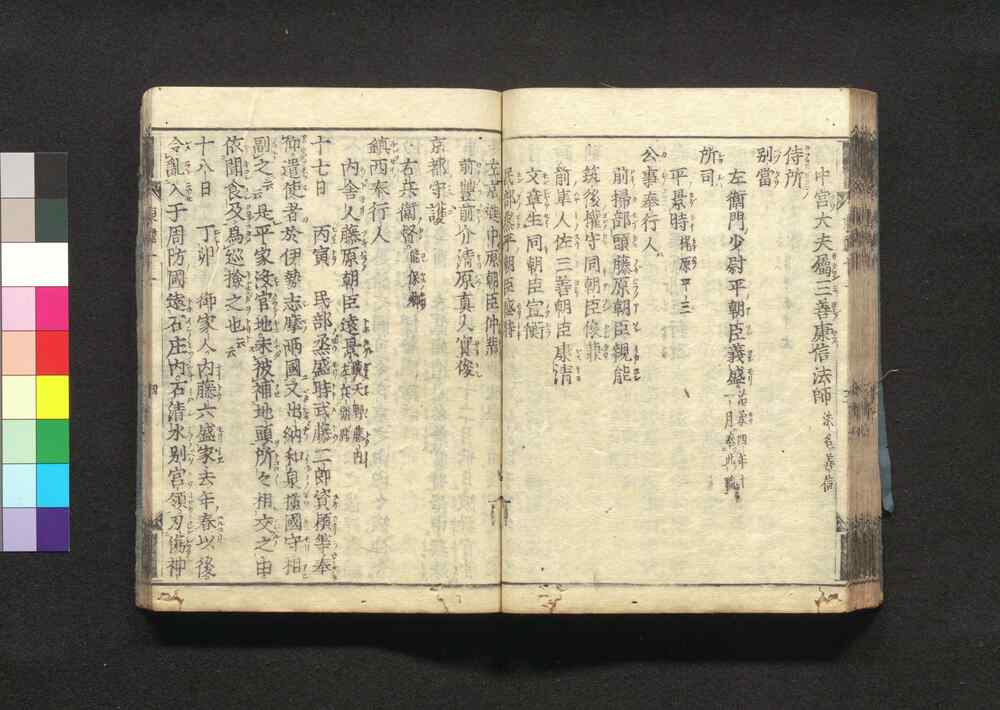 中宮大夫屬三善康信法師 法名善信
侍所
別當
左衛門少尉平朝臣義盛 治承四年十一月奉此職
所司
平景時 梶原平三
公事奉行人
前掃部頭藤原朝臣親能
筑後權守同朝臣俊兼
前隼人佐三善朝臣康清
文章生同朝臣宣衡
民部丞平朝臣盛時
左京進中原朝臣仲業
前豐前介清原真人實俊
京都守護
右兵衛督 能保卿
鎮西奉行人
內舍人藤原朝臣遠景 號天野藤內左兵衛尉
十七日 丙寅 民部丞盛時武藤二郎資頼等奉
仰遣使者於伊勢志摩兩國又出納和泉掾國守相
副之云云是平家沒官地未被補地頭所々相交之由
依聞食及為巡撿之也云云
十八日 丁卯 御家人內藤六盛家去年春以後
令亂入于周防國遠石庄內石清水別宮領刃傷神